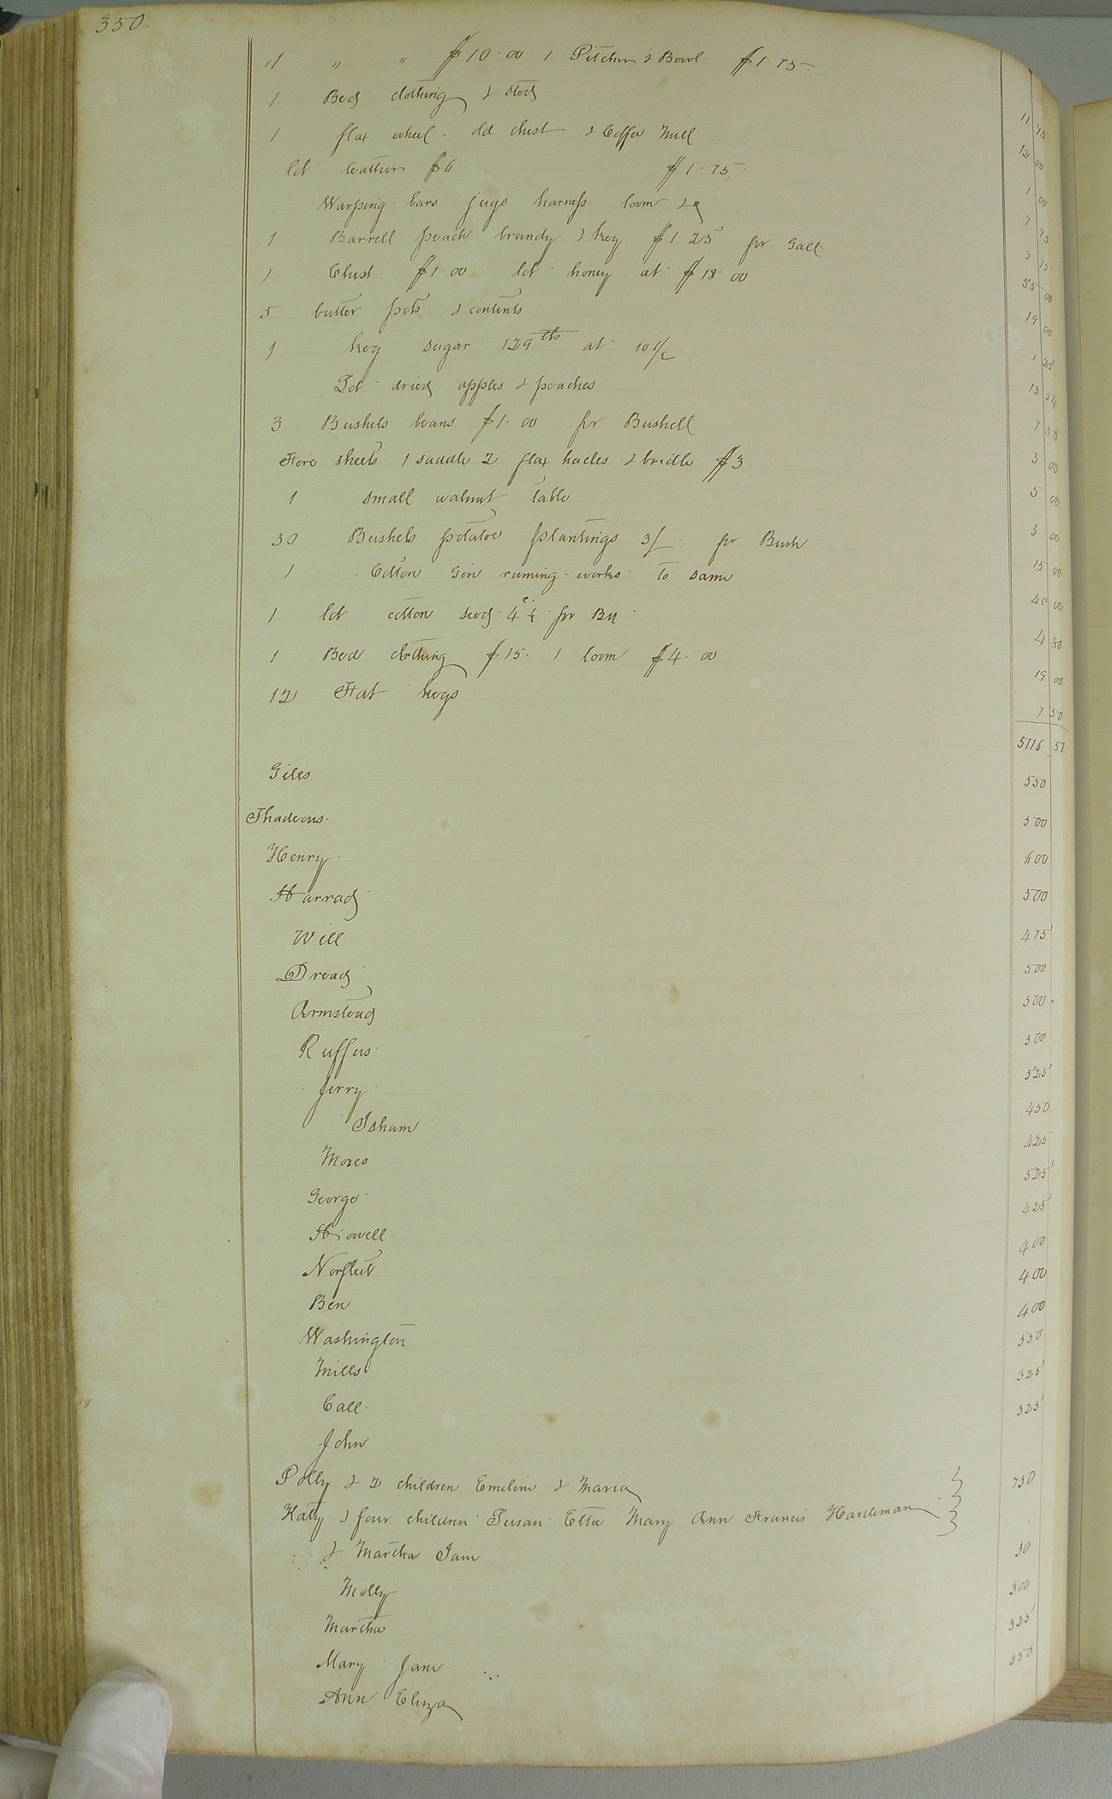 350.
" " " $10.00 1 Pitcher & Bowl $1.75 11 75
1 Bed clothing & sted 12 00
1 flax wheel old chest & Coffee Mill 1 00
lot leather $6 $1.75 7 75
Warping bars jugs harness loom & 3 75
1 Barrell peach brandy & keg $1.25 pr Gall 55 00
1 Chest $1.00 lot honey at $18 00 19 00
5 butter pots & contents 1 25
1 keg sugar 129 lbs at 10 1/2 13 54
Lot dried apples & peaches 7 50
3 Bushels beans $1.00 pr Bushell 3 00
Five sheets 1 saddle 2 flax hacles & bridle $3 5 00
1 small walnut table 3 00
30 Bushels potatoe plantings 3/ pr Bush 15 00
1 Cotton Gin runing works to same 40 00
1 lot cotton seed pr Bu 4 50
1 Bed clothing $15. 1 loom $4.00 19 00
12 Fat hogs 7 50
5116 51
Giles 550
Thadeous. 500
Henry 600
Harrad 500
Will 475
Dread 500
Armstead 500
Ruffus 300
Jerry 525
Isham 450
Moses 425
George 525
Hiowell 425
Norfleet 400
Ben 400
Washington 400
Mills 550
Call 325
John 325
Polly & 2 children Emeline & Maria 750
Katy & four children Susan Etta Mary Ann Francis Hardeman
& Martha Jane 50
Molly 300
Martha 325
Mary Jane 250
Ann Eliza